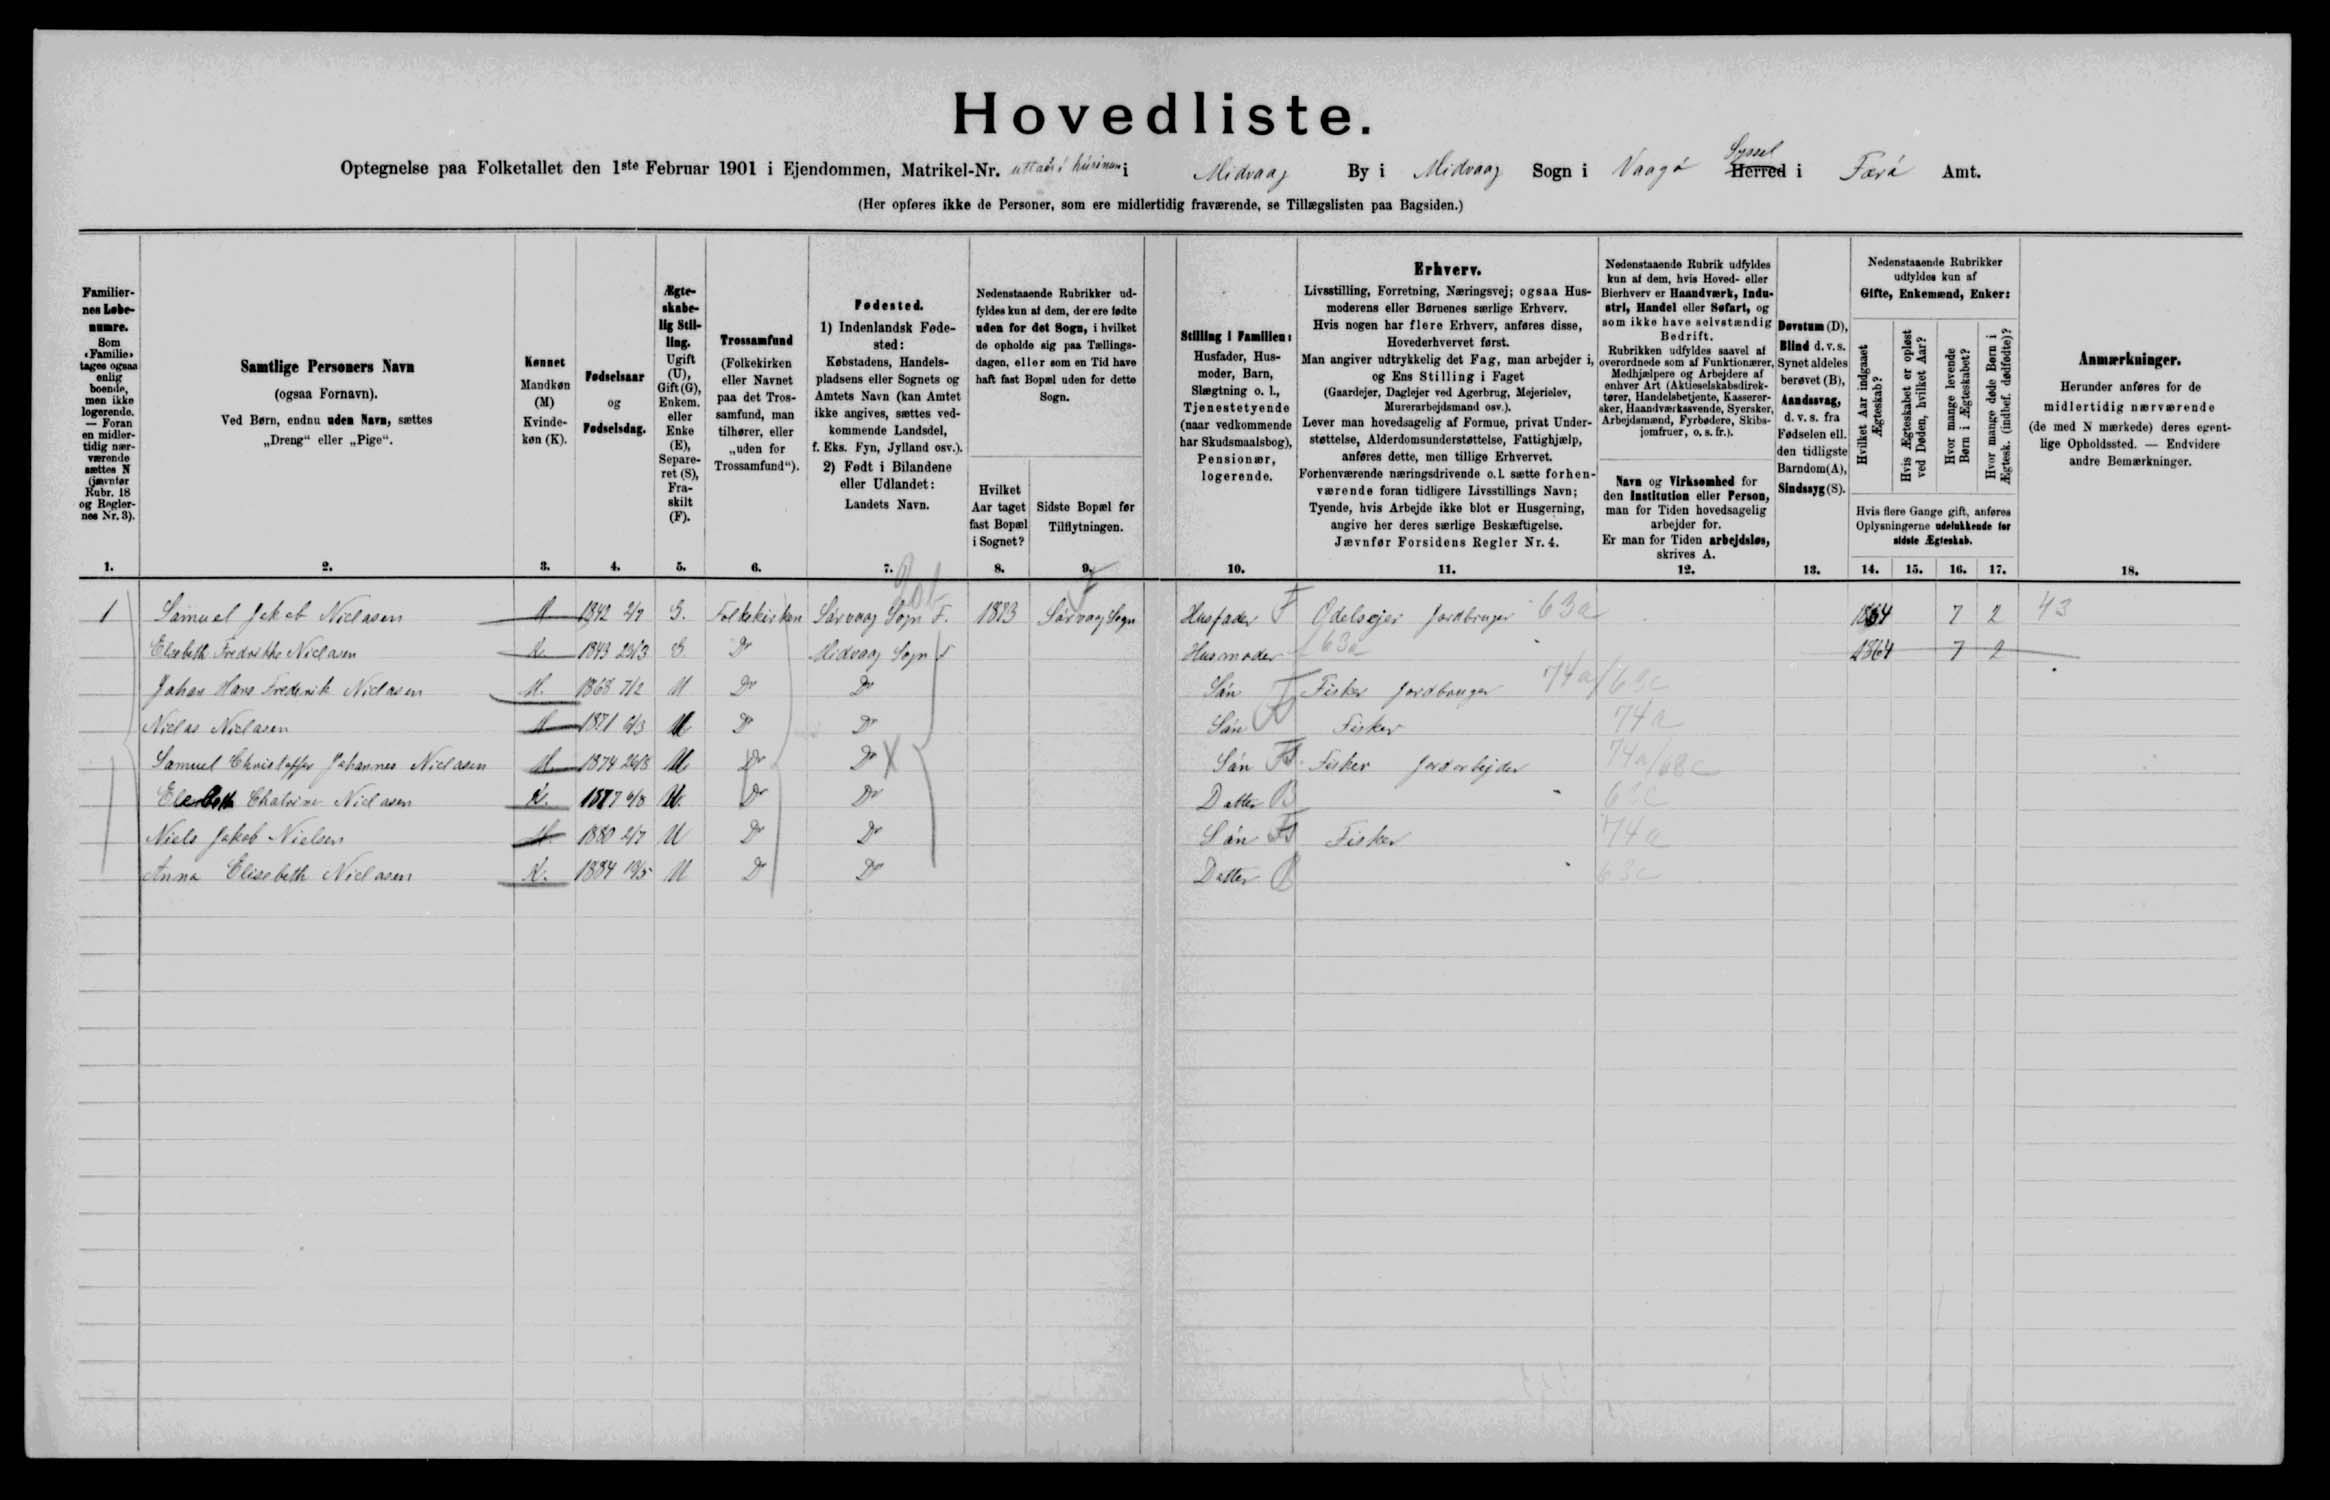 Hovedliste.
Optegnelse paa Folketallet den 1ste Februar 1901 i Ejendommen, Matrikel-Nr. i Midvaag By i Midvaag Sogn i Vaagø Syssel Herred i Færø Amt.
(Her opføres ikke de Personer, som ere midlertidig fraværende, se Tillægslisten paa Bagsiden.)
Familier-
nes Løbe-
numre.
Som
„Familie»
tages ogsaa
enlig
boende,
men ikke
logerende.
— Foran
en midler-
tidig nær-
værende
sættes N
(jævnfør
Rubr. 18
og Regler-
nes Nr. 3).
1.
Samtlige Personers Navn
(ogsaa Fornavn).
Ved Børn, endnu uden Navn, sættes
„Dreng“ eller „Pige“.
2.
Kønnet
Mandkøn
(M)
Kvinde-
køn (K).
3.
Fødselsaar
og
Fødselsdag.
4.
Ægte-
skabe-
lig Stil-
ling.
Ugift
(U),
Gift (G),
Enkem.
eller
Enke
(E),
Separe-
ret (S),
Fra-
skilt
(F).
5.
Trossamfund
(Folkekirken
eller Navnet
paa det Tros-
samfund, man
tilhører, eller
„uden for
Trossamfund“).
6.
Fødested.
1) Indenlandsk Føde-
sted:
Købstadens, Handels-
pladsens eller Sognets og
Amtets Navn (kan Amtet
ikke angives, sættes ved-
kommende Landsdel,
f. Eks. Fyn, Jylland osv.).
2) Født i Bilandene
eller Udlandet:
Landets Navn.
7.
Nedenstaaende Rubrikker ud-
fyldes kun af dem, der ere fødte
uden for det Sogn, i hvilket
de opholde sig paa Tællings-
dagen, eller som en Tid have
haft fast Bopæl uden for dette
Sogn.
Hvilket
Aar taget
fast Bopæl
i Sognet?
8.
Sidste Bopæl før
Tilflytningen.
9.
Stilling i Familien:
Husfader, Hus-
moder, Barn,
Slægtning o. l.,
Tjenestetyende
(naar vedkommende
har Skudsmaalsbog),
Pensionær,
logerende.
10.
Erhverv.
Livsstilling, Forretning, Næringsvej; ogsaa Hus-
moderens eller Børnenes særlige Erhverv.
Hvis nogen har flere Erhverv, anføres disse,
Hovederhvervet først.
Man angiver udtrykkelig det Fag, man arbejder i,
og Ens Stilling i Faget
(Gaardejer, Daglejer ved Agerbrug, Mejerielev,
Murerarbejdsmand osv.).
Lever man hovedsagelig af Formue, privat Under-
støttelse, Alderdomsunderstøttelse, Fattighjælp,
anføres dette, men tillige Erhvervet.
Forhenværende næringsdrivende o. l. sætte forhen-
værende foran tidligere Livsstillings Navn;
Tyende, hvis Arbejde ikke blot er Husgerning,
angive her deres særlige Beskæftigelse.
Jævnfør Forsidens Regler Nr. 4.
11.
Nedenstaaende Rubrik udfyldes
kun af dem, hvis Hoved- eller
Bierhverv er Haandværk, Indu-
stri, Handel eller Søfart, og
som ikke have selvstændig
Bedrift.
Rubrikken udfyldes saavel af
overordnede som af Funktionærer,
Medhjælpere og Arbejdere af
enhver Art (Aktieselskabsdirek-
tører, Handelsbetjente, Kasserer-
sker, Haandværkssvende, Syersker,
Arbejdsmænd, Fyrbødere, Skibs-
jomfruer, o. s. fr.).
Navn og Virksomhed for
den Institution eller Person,
man for Tiden hovedsagelig
arbejder for.
Er man for Tiden arbejdsløs,
skrives A.
12.
Døvstum (D),
Blind d. v. s.
Synet aldeles
berøvet (B),
Aandssvag,
d. v. s. fra
Fødselen ell.
den tidligste
Barndom (A),
Sindssyg (S).
13.
Nedenstaaende Rubrikker
udfyldes kun af
Gifte, Enkemænd, Enker:
Hvilket Aar indgaaet
Ægteskab?
Hvis Ægteskabet er opløst
ved Døden, hvilket Aar?
Hvor mange levende
Børn i Ægteskabet?
Hvor mange døde Børn i
Ægtesk. (indbef. dødfødte)?
Hvis flere Gange gift, anføres
Oplysningerne udelukkende for
sidste Ægteskab.
14. 15. 16. 17.
Anmærkninger.
Herunder anføres for de
midlertidig nærværende
(de med N mærkede) deres egent-
lige Opholdssted. — Endvidere
andre Bemærkninger.
18.
1 Samuel Jakob Niclasen M 1842 2/7 G. Folkekirken Sørvaag Sogn F. 1873 Sørvaag Sogn Husfader F Odelsejer Jordbruger 63a 1864 7 2 43
Elsebeth Fredrikke Niclasen K. 1843 23/3 G Do Midvaag Sogn Husmoder 63a 1864 7 2
Johan Hans Frederik Niclasen M. 1868 7/2 U Do Do Søn Fisker Jordbruger 74a/63c
Niclas Niclasen M 1871 6/3 U Do Do Søn Fisker 74a
Samuel Christoffer Johannes Niclasen M. 1874 26/8 U Do Do X Søn Fisker Jordarbejder 74a/68c
Elsebeth Chatrine Niclasen K. 1877 6/8 U. Do Do Datter B 63c
Niels Jakob Nielsen M. 1880 2/7 U Do Do Søn Fisker 74a
Anna Elisebeth Niclasen K. 1884 19/5 U Do Do Datter B 63c